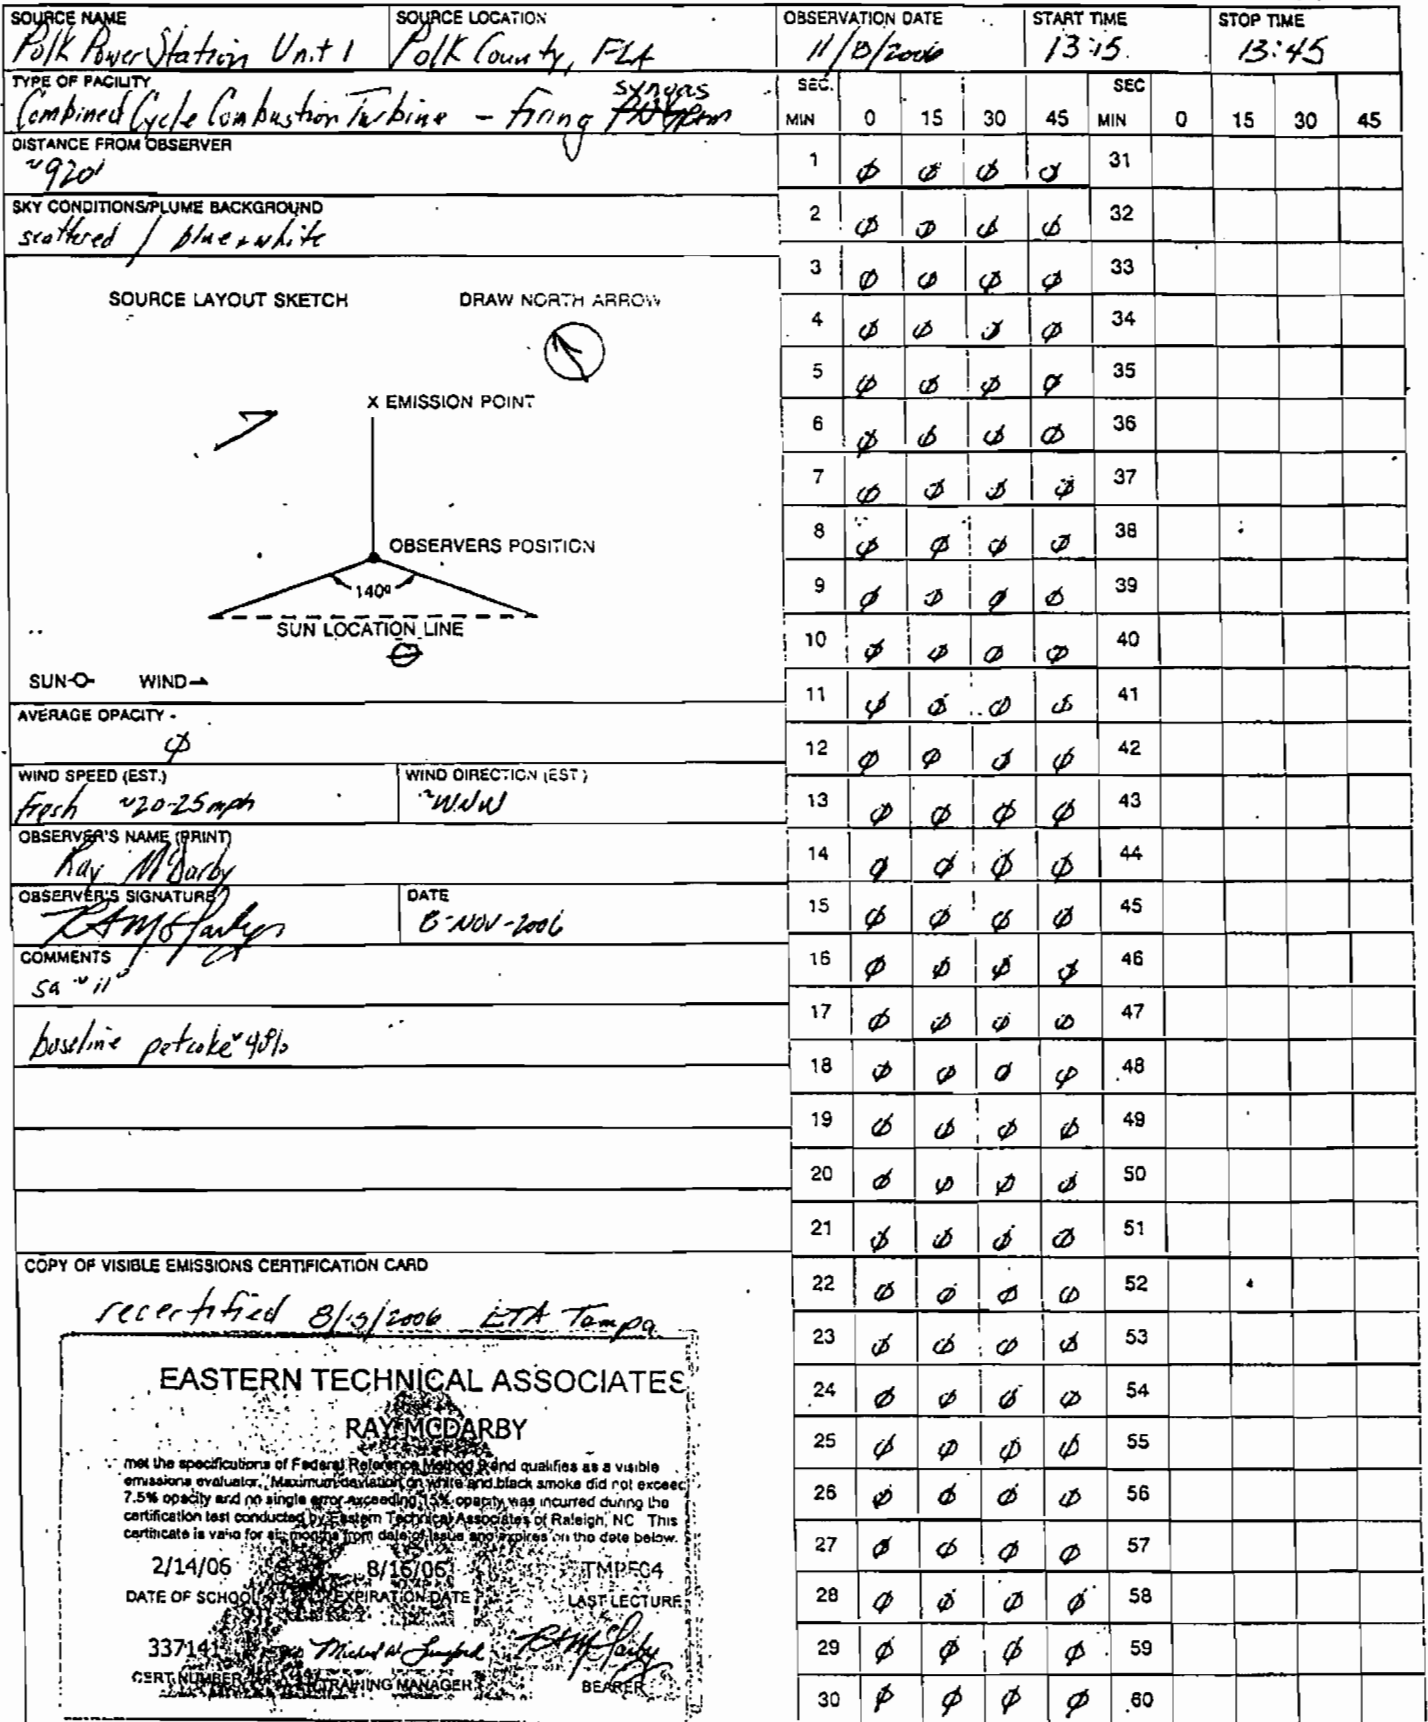 SOURCE NAME SOURCE LOCATION OBSERVATION DATE START TIME STOP TIME
Polk Power Station Unit 1 Polk County, FLA 11/13/2006 13:15 13:45
TYPE OF FACILITY
syngas
Combined Cycle Combustion Turbine - firing
DISTANCE FROM OBSERVER
~920'
SKY CONDITIONS/PLUME BACKGROUND
scattered / blue + white
SOURCE LAYOUT SKETCH DRAW NORTH ARROW
X EMISSION POINT
OBSERVERS POSITION
140º
SUN LOCATION LINE
SUN WIND
AVERAGE OPACITY -
Ø
WIND SPEED (EST.) WIND DIRECTION (EST)
fresh ~20-25 mph ~WNW
OBSERVER'S NAME (PRINT)
Ray McDarby
OBSERVER'S SIGNATURE DATE
RAMcDarby 13-NOV-2006
COMMENTS
baseline petcoke
COPY OF VISIBLE EMISSIONS CERTIFICATION CARD
recertified 8/15/2006 ETA Tampa
EASTERN TECHNICAL ASSOCIATES
RAY MCDARBY
met the specifications of Federal Reference Method 9 and qualifies as a visible
emissions evaluator. Maximum deviation on white and black smoke did not exceed
7.5% opacity and no single error exceeding 15% opacity was incurred during the
certification test conducted by Eastern Technical Associates of Raleigh, NC This
certificate is valid for six months from date of issue and expires on the date below.
2/14/06 8/15/06 TMPF04
DATE OF SCHOOL EXPIRATION DATE LAST LECTURE
337141 RAMcDarby
CERT NUMBER TRAINING MANAGER BEARER
SEC. SEC
MIN 0 15 30 45 MIN 0 15 30 45
1 Ø Ø Ø Ø 31
2 Ø Ø Ø Ø 32
3 Ø Ø Ø Ø 33
4 Ø Ø Ø Ø 34
5 Ø Ø Ø Ø 35
6 Ø Ø Ø Ø 36
7 Ø Ø Ø Ø 37
8 Ø Ø Ø Ø 38
9 Ø Ø Ø Ø 39
10 Ø Ø Ø Ø 40
11 Ø Ø Ø Ø 41
12 Ø Ø Ø Ø 42
13 Ø Ø Ø Ø 43
14 Ø Ø Ø Ø 44
15 Ø Ø Ø Ø 45
16 Ø Ø Ø Ø 46
17 Ø Ø Ø Ø 47
18 Ø Ø Ø Ø 48
19 Ø Ø Ø Ø 49
20 Ø Ø Ø Ø 50
21 Ø Ø Ø Ø 51
22 Ø Ø Ø Ø 52
23 Ø Ø Ø Ø 53
24 Ø Ø Ø Ø 54
25 Ø Ø Ø Ø 55
26 Ø Ø Ø Ø 56
27 Ø Ø Ø Ø 57
28 Ø Ø Ø Ø 58
29 Ø Ø Ø Ø 59
30 Ø Ø Ø Ø 60